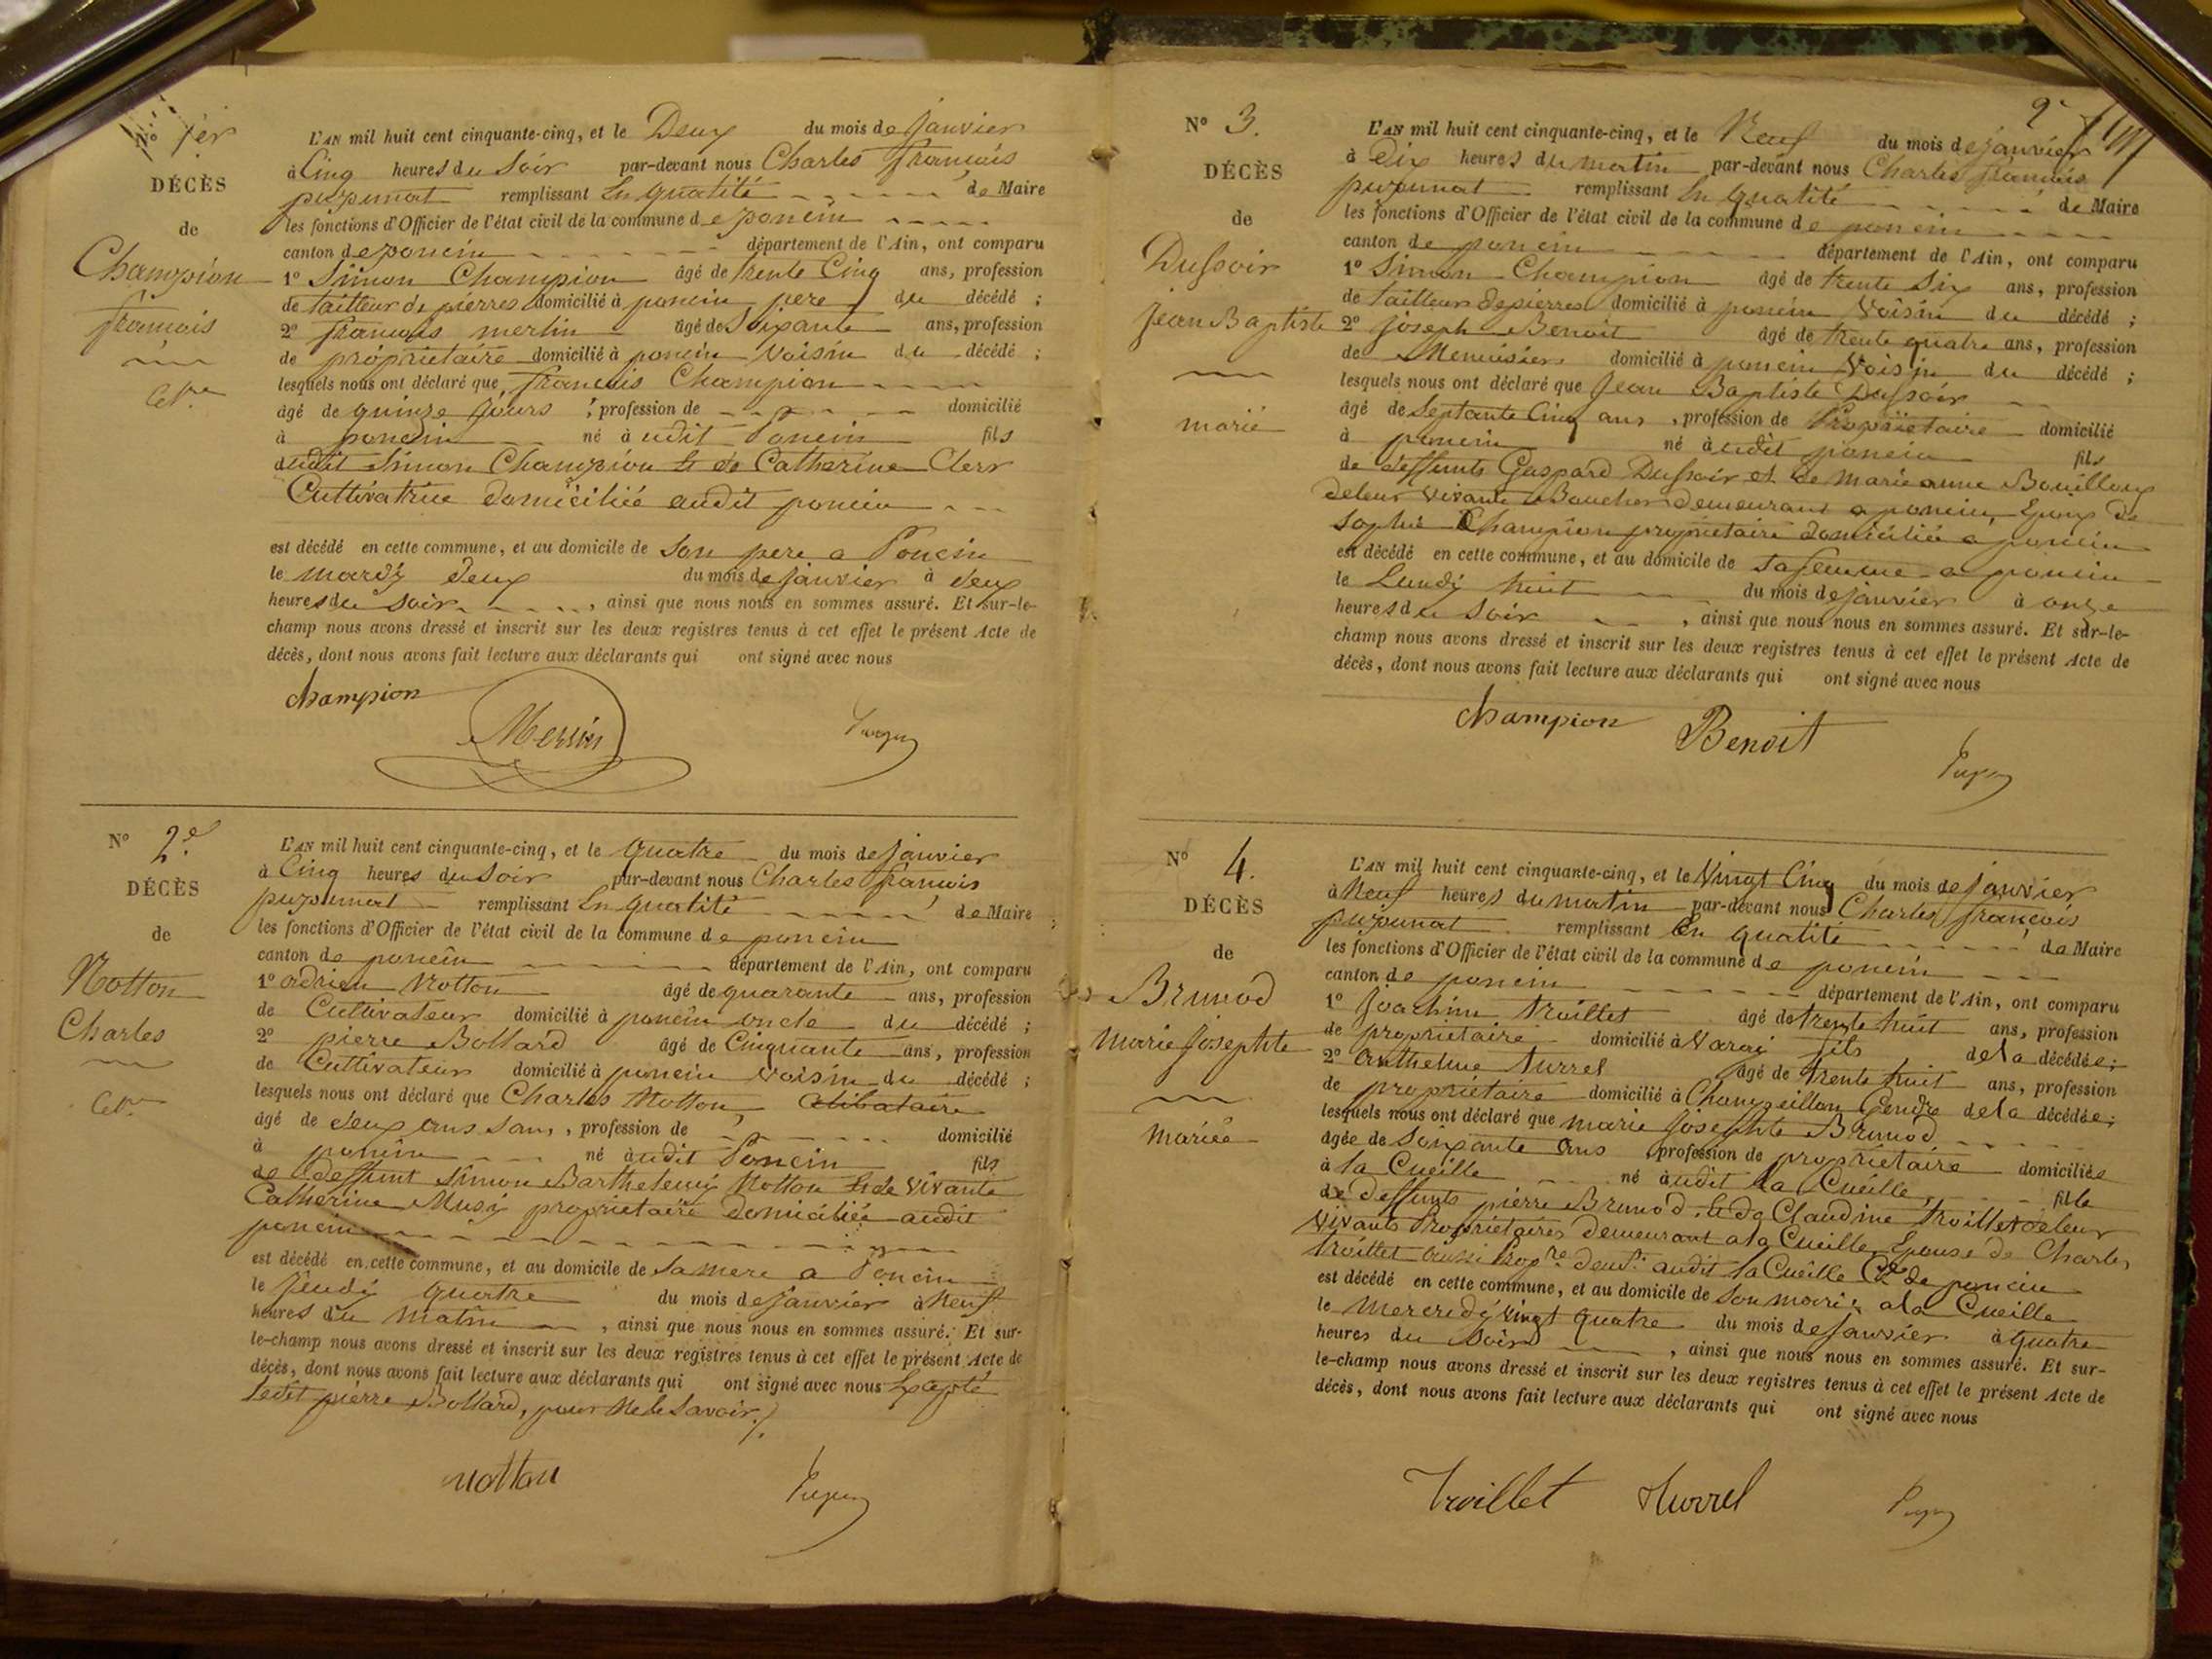 N° 1er
DÉCÈS
de
Champion
francois
Cel.re
L'AN mil huit cent cinquante-cinq, et le Deux du mois de janvier
à Cinq heures du Soir par-devant nous Charles francois
puzunat remplissant En qualité de Maire
les fonctions d'Officier de l'état civil de la commune de poncin
canton de poncin département de l'Ain, ont comparu
1° Simon Champion âgé de trente Cinq ans, profession
de tailleur de pierres domicilié à poncin pere du décédé ;
2° francois merlin âgé de Soixante ans, profession
de propriétaire domicilié à poncin Voisin du décédé ;
lesquels nous ont déclaré que francois Champion
âgé de quinze jours , profession de domicilié
à poncin né à udit Poncin fils
dudit Simon Champion Et de Catherine Clerr
Cultivatrice domiciliée audit poncin
est décédé en cette commune, et au domicile de Son pere a Poncin
le mardy deux du mois de janvier à deux
heures du Soir , ainsi que nous nous en sommes assuré. Et sur-le-
champ nous avons dressé et inscrit sur les deux registres tenus à cet effet le présent Acte de
décès, dont nous avons fait lecture aux déclarants qui ont signé avec nous
champion
Merlin
N° 2e.
DÉCÈS
de
Notton
Charles
Cel.re
L'AN mil huit cent cinquante-cinq, et le quatre du mois de janvier
à Cinq heures du Soir par-devant nous Charles francois
puzunat remplissant En qualité de Maire
les fonctions d'Officier de l'état civil de la commune de poncin
canton de poncin département de l'Ain, ont comparu
1° adrien Notton âgé de quarante ans, profession
de Cultivateur domicilié à poncin oncle du décédé ;
2° pierre Bollard âgé de Cinquante ans, profession
de Cultivateur domicilié à poncin voisin du décédé ;
lesquels nous ont déclaré que Charles Notton, Célibataire
âgé de deux ans Sans , profession de domicilié
à poncin né à udit Poncin fils
de deffunt Simon Barthelemy Notton Et de vivante
Catherine Musy propriétaire domiciliée audit
poncin
est décédé en cette commune, et au domicile de Sa mere a Poncin
le jeudy quatre du mois de janvier à Neuf
heures du Matin , ainsi que nous nous en sommes assuré. Et sur-
le-champ nous avons dressé et inscrit sur les deux registres tenus à cet effet le présent Acte de
décès, dont nous avons fait lecture aux déclarants qui ont signé avec nous Excepté
Ledit pierre Bollard, pour ne le Savoir./.
notton
2
N° 3.
DÉCÈS
de
Dussoir
Jean Baptiste
marié
L'AN mil huit cent cinquante-cinq, et le Neuf du mois de janvier
à Dix heures du matin par-devant nous Charles francois
puzunat remplissant En qualité de Maire
les fonctions d'Officier de l'état civil de la commune de poncin
canton de poncin département de l'Ain, ont comparu
1° Simon Champion âgé de trente Six ans, profession
de tailleur de pierres domicilié à poncin Voisin du décédé ;
2° joseph Benoit âgé de trente quatre ans, profession
de Menuisier domicilié à poncin Voisin du décédé ;
lesquels nous ont déclaré que Jean Baptiste Dussoir
âgé de Septante Cinq ans , profession de Propriétaire domicilié
à poncin né à udit poncin fils
de deffunts Gaspard Dussoir et de marie anne Bouilloux
de leur vivant Boucher demeurant a poncin, Epoux de
Sophie Champion propriétaire domiciliée a poncin
est décédé en cette commune, et au domicile de Sa femme a poncin
le Lundy huit du mois de janvier à onze
heures du Soir , ainsi que nous nous en sommes assuré. Et sur-le-
champ nous avons dressé et inscrit sur les deux registres tenus à cet effet le présent Acte de
décès, dont nous avons fait lecture aux déclarants qui ont signé avec nous
champion Benoit
N° 4.
DÉCÈS
de
Brunod
Marie Josephte
Mariée
L'AN mil huit cent cinquante-cinq, et le Vingt Cinq du mois de janvier
à Neuf heures du matin par-devant nous Charles françois
puzunat remplissant En qualité de Maire
les fonctions d'Officier de l'état civil de la commune de poncin
canton de poncin département de l'Ain, ont comparu
1° Joachim troillet âgé de trente huit ans, profession
de propriétaire domicilié à Varai fils de la décédée ;
2° anthelme Murrel âgé de trente huit ans, profession
de propriétaire domicilié à Champeillon Gendre de la décédée ;
lesquels nous ont déclaré que marie Josephte Brunod
âgée de Soixante ans , profession de propriétaire domiciliée
à la Cueille né à udit la Cueille, fille
de deffunts pierre Brunod, Et de Claudine troillet de leur
vivants Propriétaires demeurant a la Cueille, Epouse de Charles
troillet aussi Prop.re demt. audit la Cueille Cne de poncin
est décédé en cette commune, et au domicile de Son mari, a la Cueille
le Mercredy vingt quatre du mois de Janvier à quatre
heures du Soir , ainsi que nous nous en sommes assuré. Et sur-
le-champ nous avons dressé et inscrit sur les deux registres tenus à cet effet le présent Acte de
décès, dont nous avons fait lecture aux déclarants qui ont signé avec nous
Troillet Murrel